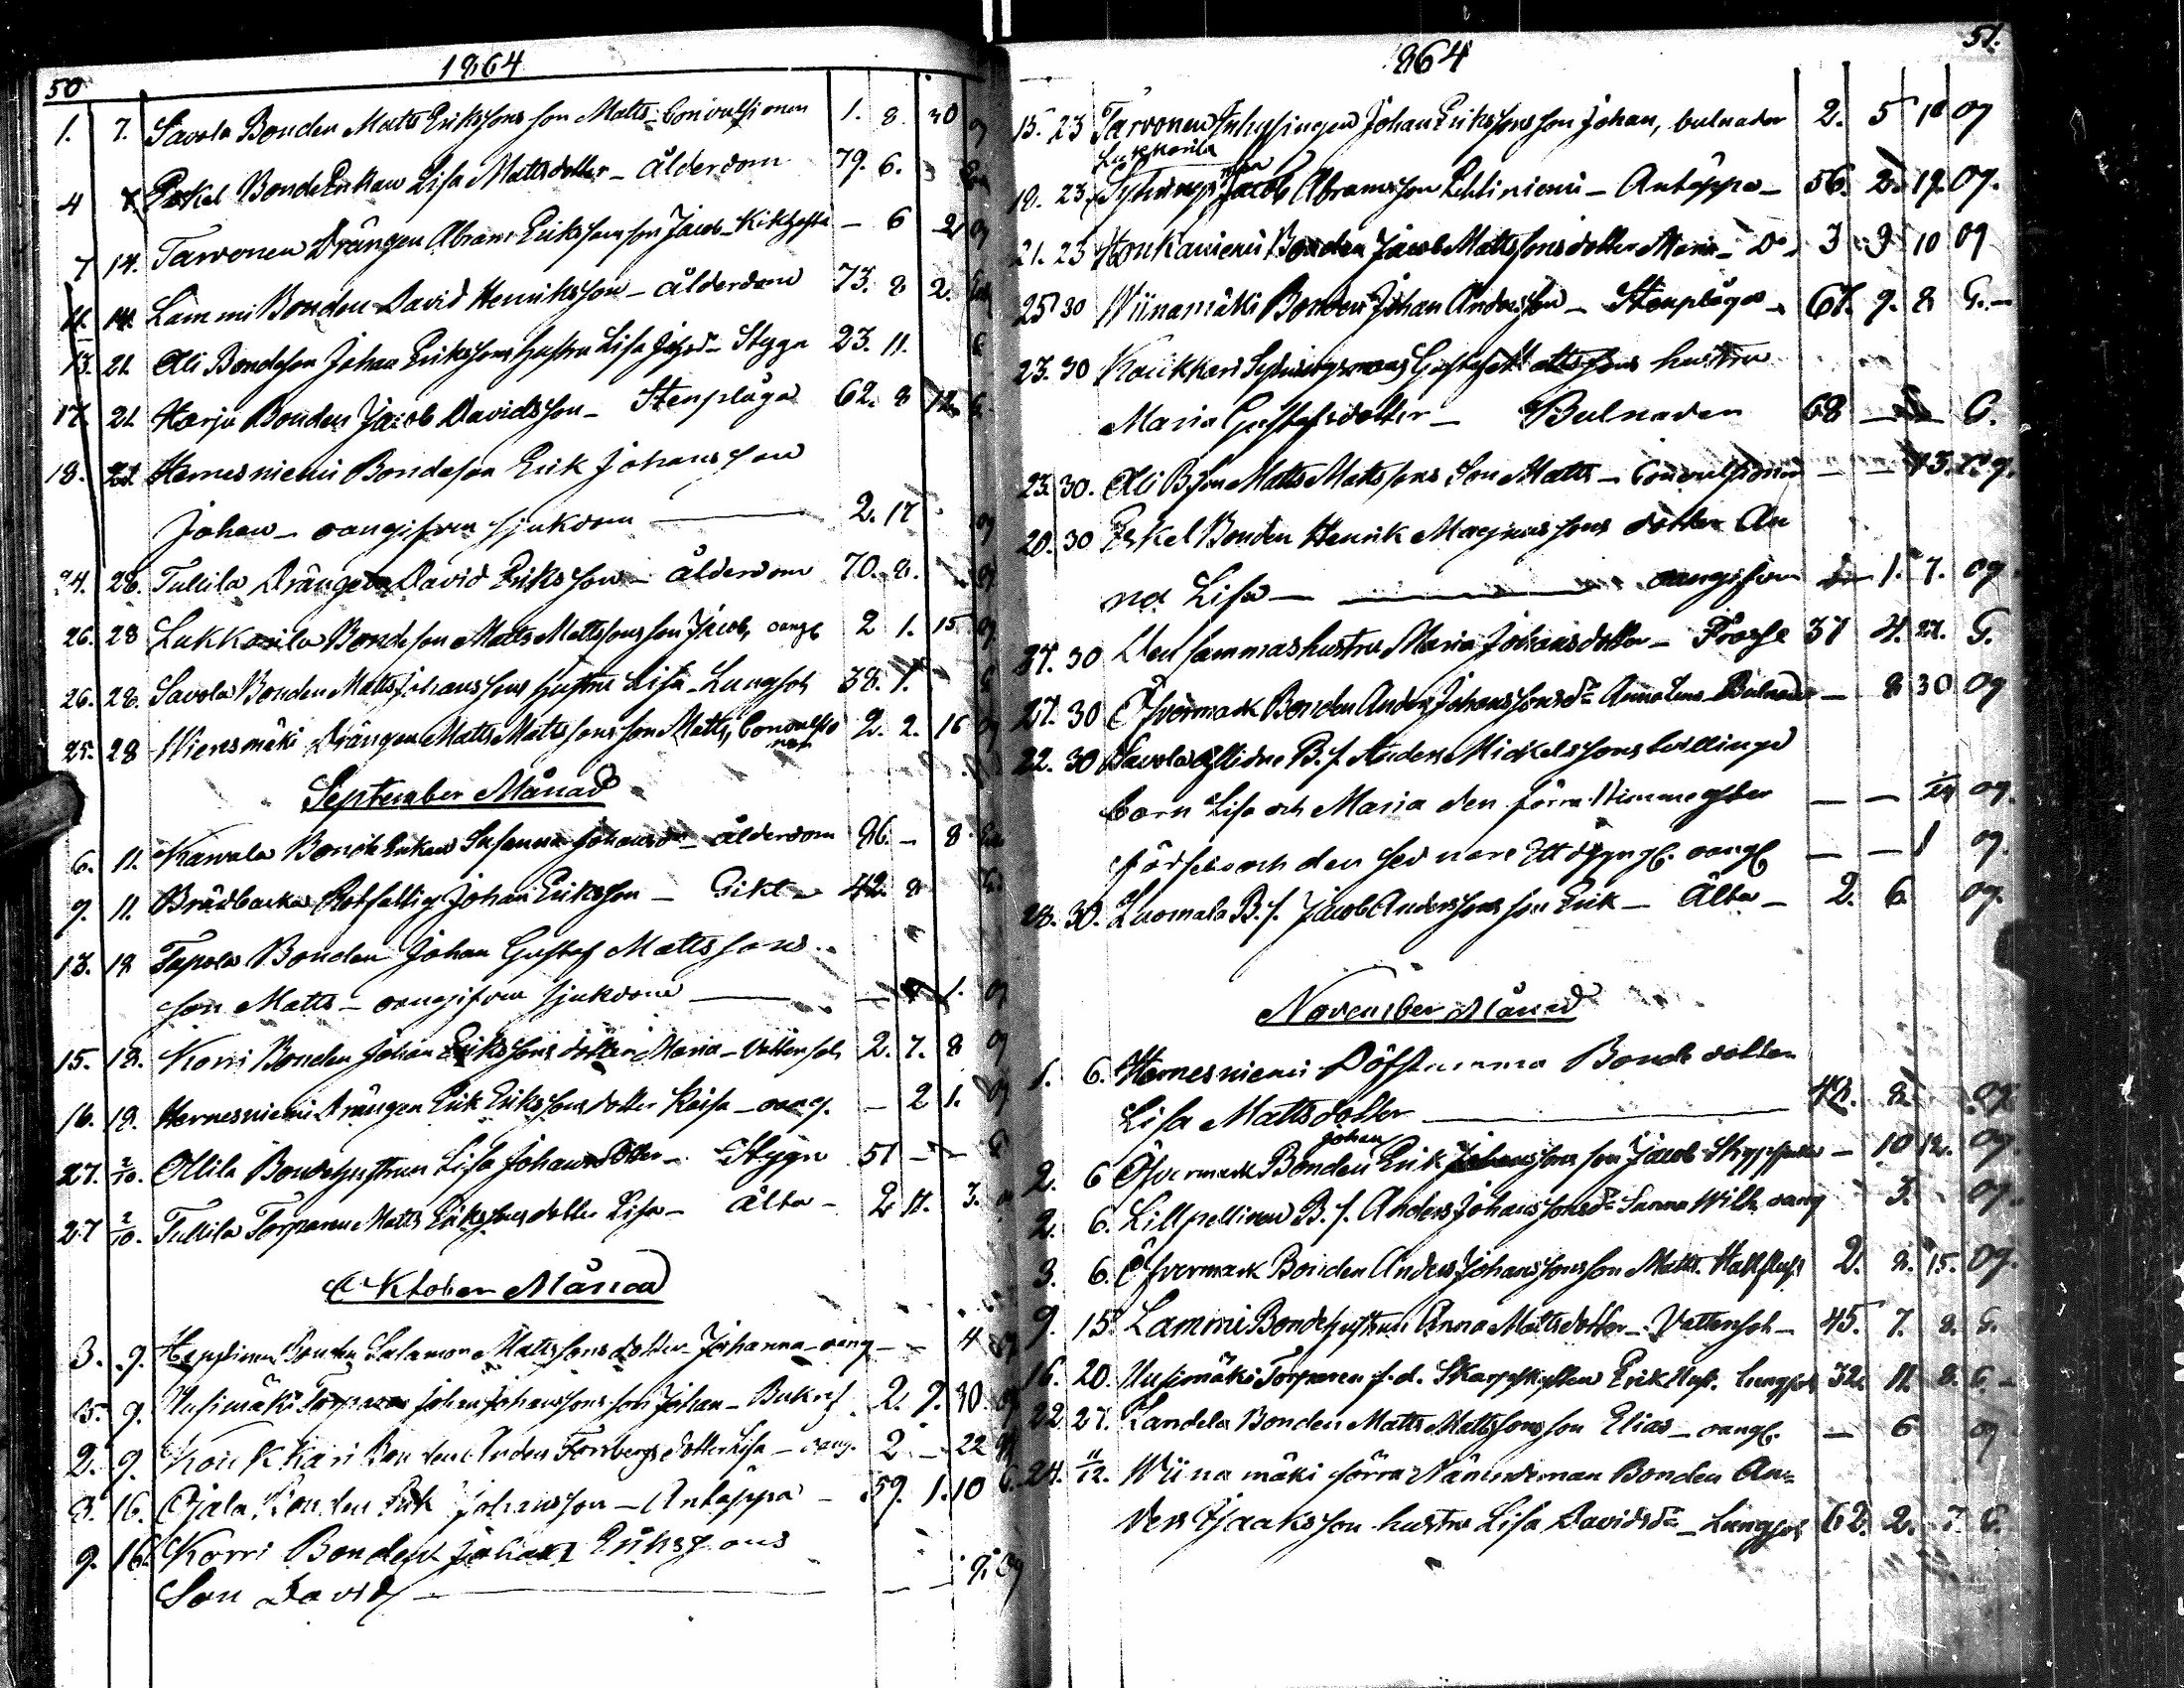 50
1864
1. 7. Savola Bonden Matts Erikssons son Matts - Convulsioner 1. 8. 30 og
4 Eskel Bonde Enkan Lisa Mattsdotter - ålderdom 79. 6.
7 14. Tarvonen Drängen Abram Erikssons son Jacob - Kikhosta - 6 2 og
11. 14. Lammi Bonden David Henriksson - ålderdom 73. 8 2.
13. 21. Ali Bondeson Johan Erikssons hustru Lisa - Stygn 23. 11. G
17. 21. Harju Bonden Jacob Davidsson - Stenplåga 62. 8 12. G.
18. 21. Hernesniemi Bondeson Erik Johansson
Johan - oangifven sjukdom - 2. 17 og
24. 28. Tullila Drängen David Eriksson - ålderdom 70. 8.
26. 28 Lukkarila Bondeson Matts Mattssons son Jacob, oangf 2 1. 15 og
26. 28. Savola Bonden Matts Johanssons hustru Lisa - Lungsot 38. 1. G
25. 28 Wiensmäki Drängen Matts Mattssons son Matts, Convulsio 2. 2. 16 og
ner
September Månad
6. 11. Kawala Bonde Enkan Susanna Johansdr - ålderdom 86. - 8
9. 11. Brädbacka Rotfattig Johan Eriksson - Gikt - 42. 8
13. 18 Tapola Bonden Johan Gustaf Mattssons
son Matts - oangifven sjukdom - 1. og
15. 18. Korri Bonden Johan Erikssons dotter Maria - Vattensot 2. 7. 8 og
16. 18. Hernesniemi Drängen Erik Erikssons dotter Kaisa - oang. - 2 1. og
27. 2/10. Ollila Bondehustrun Lisa Johansdotter - Stygn 51 - - G
27 2/10. Tullila Torparen Matts Erikssons dotter Lisa - Älta - 2. 11. 3.
Oktober Månad
3. 9. Bonden Salamon Mattssons dotter Johanna - oang - - 4 og
15. 9. Uusimäki Torparen Johan Johanssons son Johan - Bukref 2. 9. 30. og
2. 9. Koukkari Bonden Anders Forsbergs dotter Lisa - oang. 2 - 22 og
8. 16. Ojala Bonden Erik Johansson - Antäppa - 59. 1. 10 G.
9. 16. Korri Bonden Johan Erikssons
Son David - - - 9. og
51.
1864
15. 23 Tarvonen Inhysingen Johan Erikssons son Johan, bulnader 2. 5 18 og
Lukkarila
18. 23 Jacob Abramsson - Antäppa - 56. 2. 19. og.
21. 23 Honkaniemi Bonden Jacob Mattssons dotter Maria - Do - 3 9 10 og
25 30 Wiinamäki Bonden Johan Andersson - Stenplåga - 67. 9. 8 G. -
23. 30 Koukkari Gustaf Mattssons hustru
Maria Gustafsdotter - Bulnaden 68 - - G.
23. 30. Ali Bson Matts Mattssons Son Matts - Convulsioner - - 13. og.
20. 30 Eskel Bonden Henrik Magnussons dotter An
na Lisa - oangifven 1. 7. og
27. 30 Densammas hustru Maria Johansdotter - Frossa 37 4. 27. G.
27. 30 Öfvermark Bonden Anders Johanssons dr Anna Lena - Bulnader - 8 30 og
22. 30 Savola aflidne B. s. Anders Mickelssons tvillinge
barn Lisa och Maria den förra timme efter - - og.
födseln och den sednare Ett dygn gl. oangf - - 1 og.
28. 30. Luomala B. s. Jacob Anderssons son Erik - Älta - 2. 6. og.
November Månad
1. 6. Hernesniemi Döfstumma Bonde dotter
Lisa Mattsdotter - 42. 8. og.
Johan
2. 6 Öfvermark Bonden Erik Johanssons son Jacob - 10 12. og.
2. 6. Lillpellinen B. s. Anders Johanssons dr Sanna Wilh. oang 3. og.
3. 6. Öfvermark Bonden Anders Johanssons son Matts. Halsfluss 2. 8. 15. og.
9. 15. Lammi Bondehustrun Anna Mattsdotter - Vattensot - 45. 7. 8. G.
16. 20. Uusimäki Torparen f. d. Skarpskytten Erik Lungsot 32. 11. 8. G. -
22 27. Kandela Bonden Matts Mattssons son Elias - oangf. - 6 og
24. 11/12. Wiinamäki förra Nämndeman Bonden An=
ders Isaaksson hustru Lisa Davidsdr - Lungsot 62. 2. 7. G.